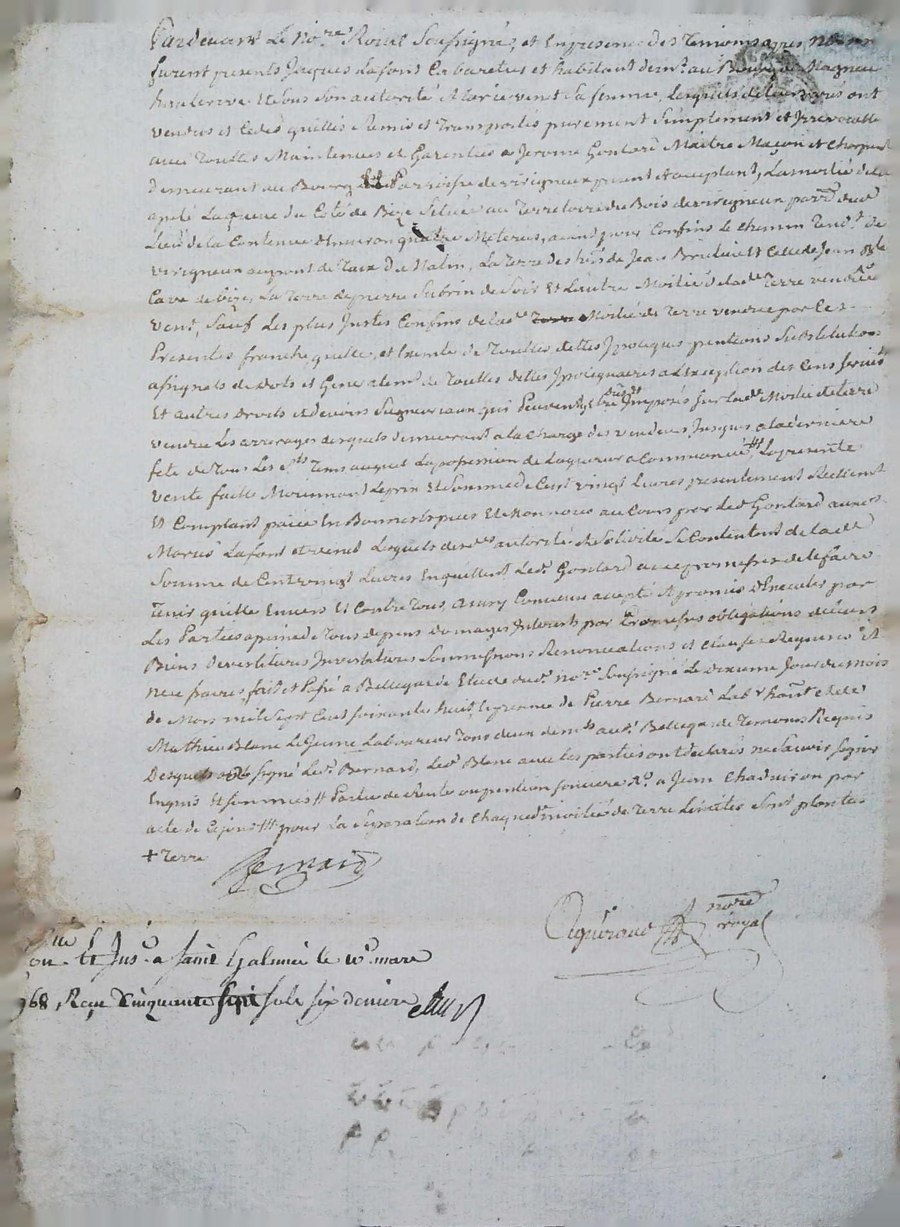 Pardevant Le No.re Royal Soussigné, et En presence des Temoins apres
furent presents Jacques Lafont Cabaretier et habitant dem.t au Bourg de Magneu
hauterive Et sous son autorité Marie vent sa femme Lesquels de leur gré ont
vendus et cedés quittés Remis et Transportés purement Simplement et Irrevocable
avec Touttes Maintenues et Garenties a Jerome Gontard Maitre Maçon et Charpent
demeurant au Bourg et Parroisse de virigneux present et acceptant, La moitié de la
apelé La queue du Coté de Bize Située au Territoire du Bois de virigneux parr.e dud
Lieu de la Contenue d'Environ quatre Meterées, ayant pour Confins le Chemin Tend.t de
virigneux au pont de Taix du Matin, La Terre des hérs de Jean
Cave de bize, La Terre de pierre Subrin de Soir Et L'autre Moitié de lad.e Terre vendue de
vent, Sauf Les plus Justes Confins de lad.e Moitié de Terre vendue par Ces
Presentes franche, quitte, et Exempte de Touttes dettes Ipoteques pentions Substitutions
asignats de dots et Generalem.t de Touttes dettes Ipotequaires a L'exception des Cens servis
Et autres Droits et devoirs Seigneuriaux qui Peuvent Etre Imposés Sur Lad.e Moitié de terre
vendue Les arrerages desquels demeurant a la Charge des vendeurs Jusques a la derniere
fete de Tous Les S.ts Tems auquel La possession de Laquereur a Commancé #, La presente
vente faitte Moiennant Le prix Et Somme de Cent vingt Livres presentement Reelement
Et Comptant paiée En Bonnes Espèces Et Monnoies au Cours par Led. Gontard auxd.
Mariés Lafont et vent Lesquels de d.e autorité Se Contentent de lad.e
Somme de Cent vingt Livres En quittent Led. Gontard avec promesse de le faire
Tenir quitte Envers Et Contre Tous, Ainsy Convenu accepté Et promis d'Executer par
Les Parties a peine de Tous depens domages Interets par Promesses obligations de leurs
Biens devestitures Investitures Soumissions Renonciations et clauses Requises Et
necessaires, fait et Passé a Bellegarde Etude dud. No.re Soussigné Le dixieme Jour du Mois
de Mars mil Sept Cent soixante huit, En presence de Pierre Bernard Lab.r
Mathieu Blanc Le Jeune Laboureur Tous deux dem.ts aud. Bellegarde Temoins Requis
Desquels a signé Led. Bernard, Led. Blanc avec les parties ont declarés ne Sçavoir Signer
Enquis Et Sommés # Partie de Rente ou pention fonciere d. a Jean Chaduiron par
acte de Ce jour # pour La Separation de Chaqune moitiés de Terre Limittes Sont plantés
+ Terre
Bernard
Aiguiraud no.re royal
Con.lé et Ins.é a saint Galmier le 10.e mars
768, Reçu Cinquante sept sols six deniers